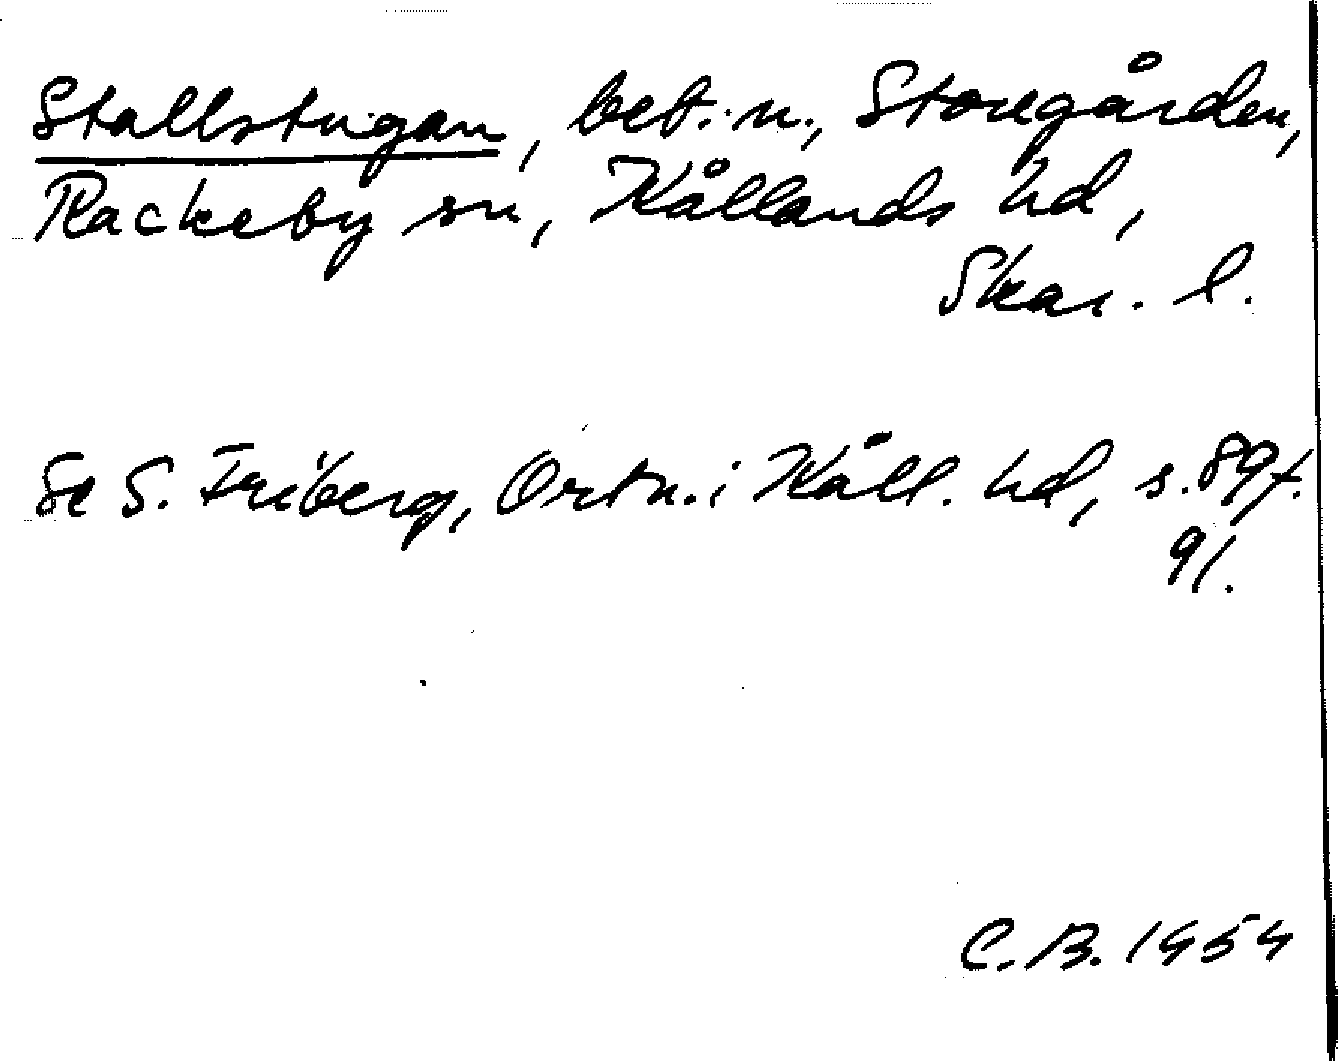 Stallstugan, beb.n., Storegården,
Rackeby sn, Kållands hd,
Skar. l.
Se S. Friberg, Ortn. i Kåll. hd, s. 89f.
91.
C.B. 1954